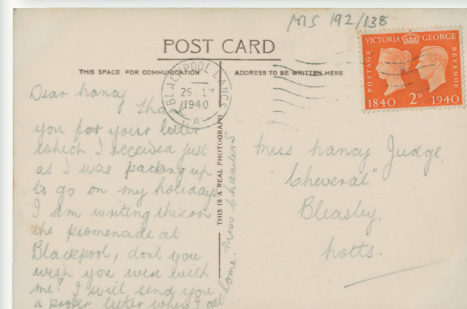 MS 192/138
POST CARD
THIS SPACE FOR COMMUNICATION
ADDRESS TO BE WRITTEN HERE
VICTORIA GEORGE
POSTAGE
REVENUE
1840 2D 1940
BLACKPOOL LANCS
25
1940
A
THIS IS A REAL PHOTOGRAPH
Dear Nancy
Thank
you for your letter
which I received just
as I was packing up
to go on my holidays
I am writing this on
the promenade at
Blackpool, dont you
wish you were with
me? I will send you
a proper letter when I get
home.
Miss Nancy Judge,
"Cheveral"
Bleasby,
Notts.